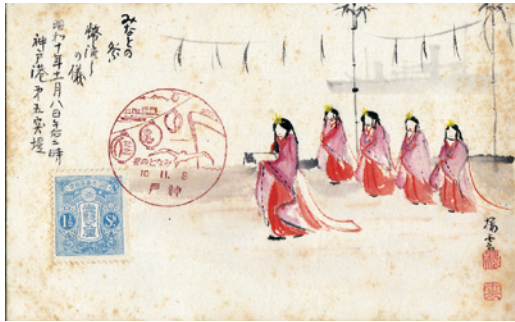 みなとの
祭
幣流し
の儀
昭和十年十一月八日午后二時
神戸港第五突堤
祭のとなみ
10.11.8
戸神
1½ Sn